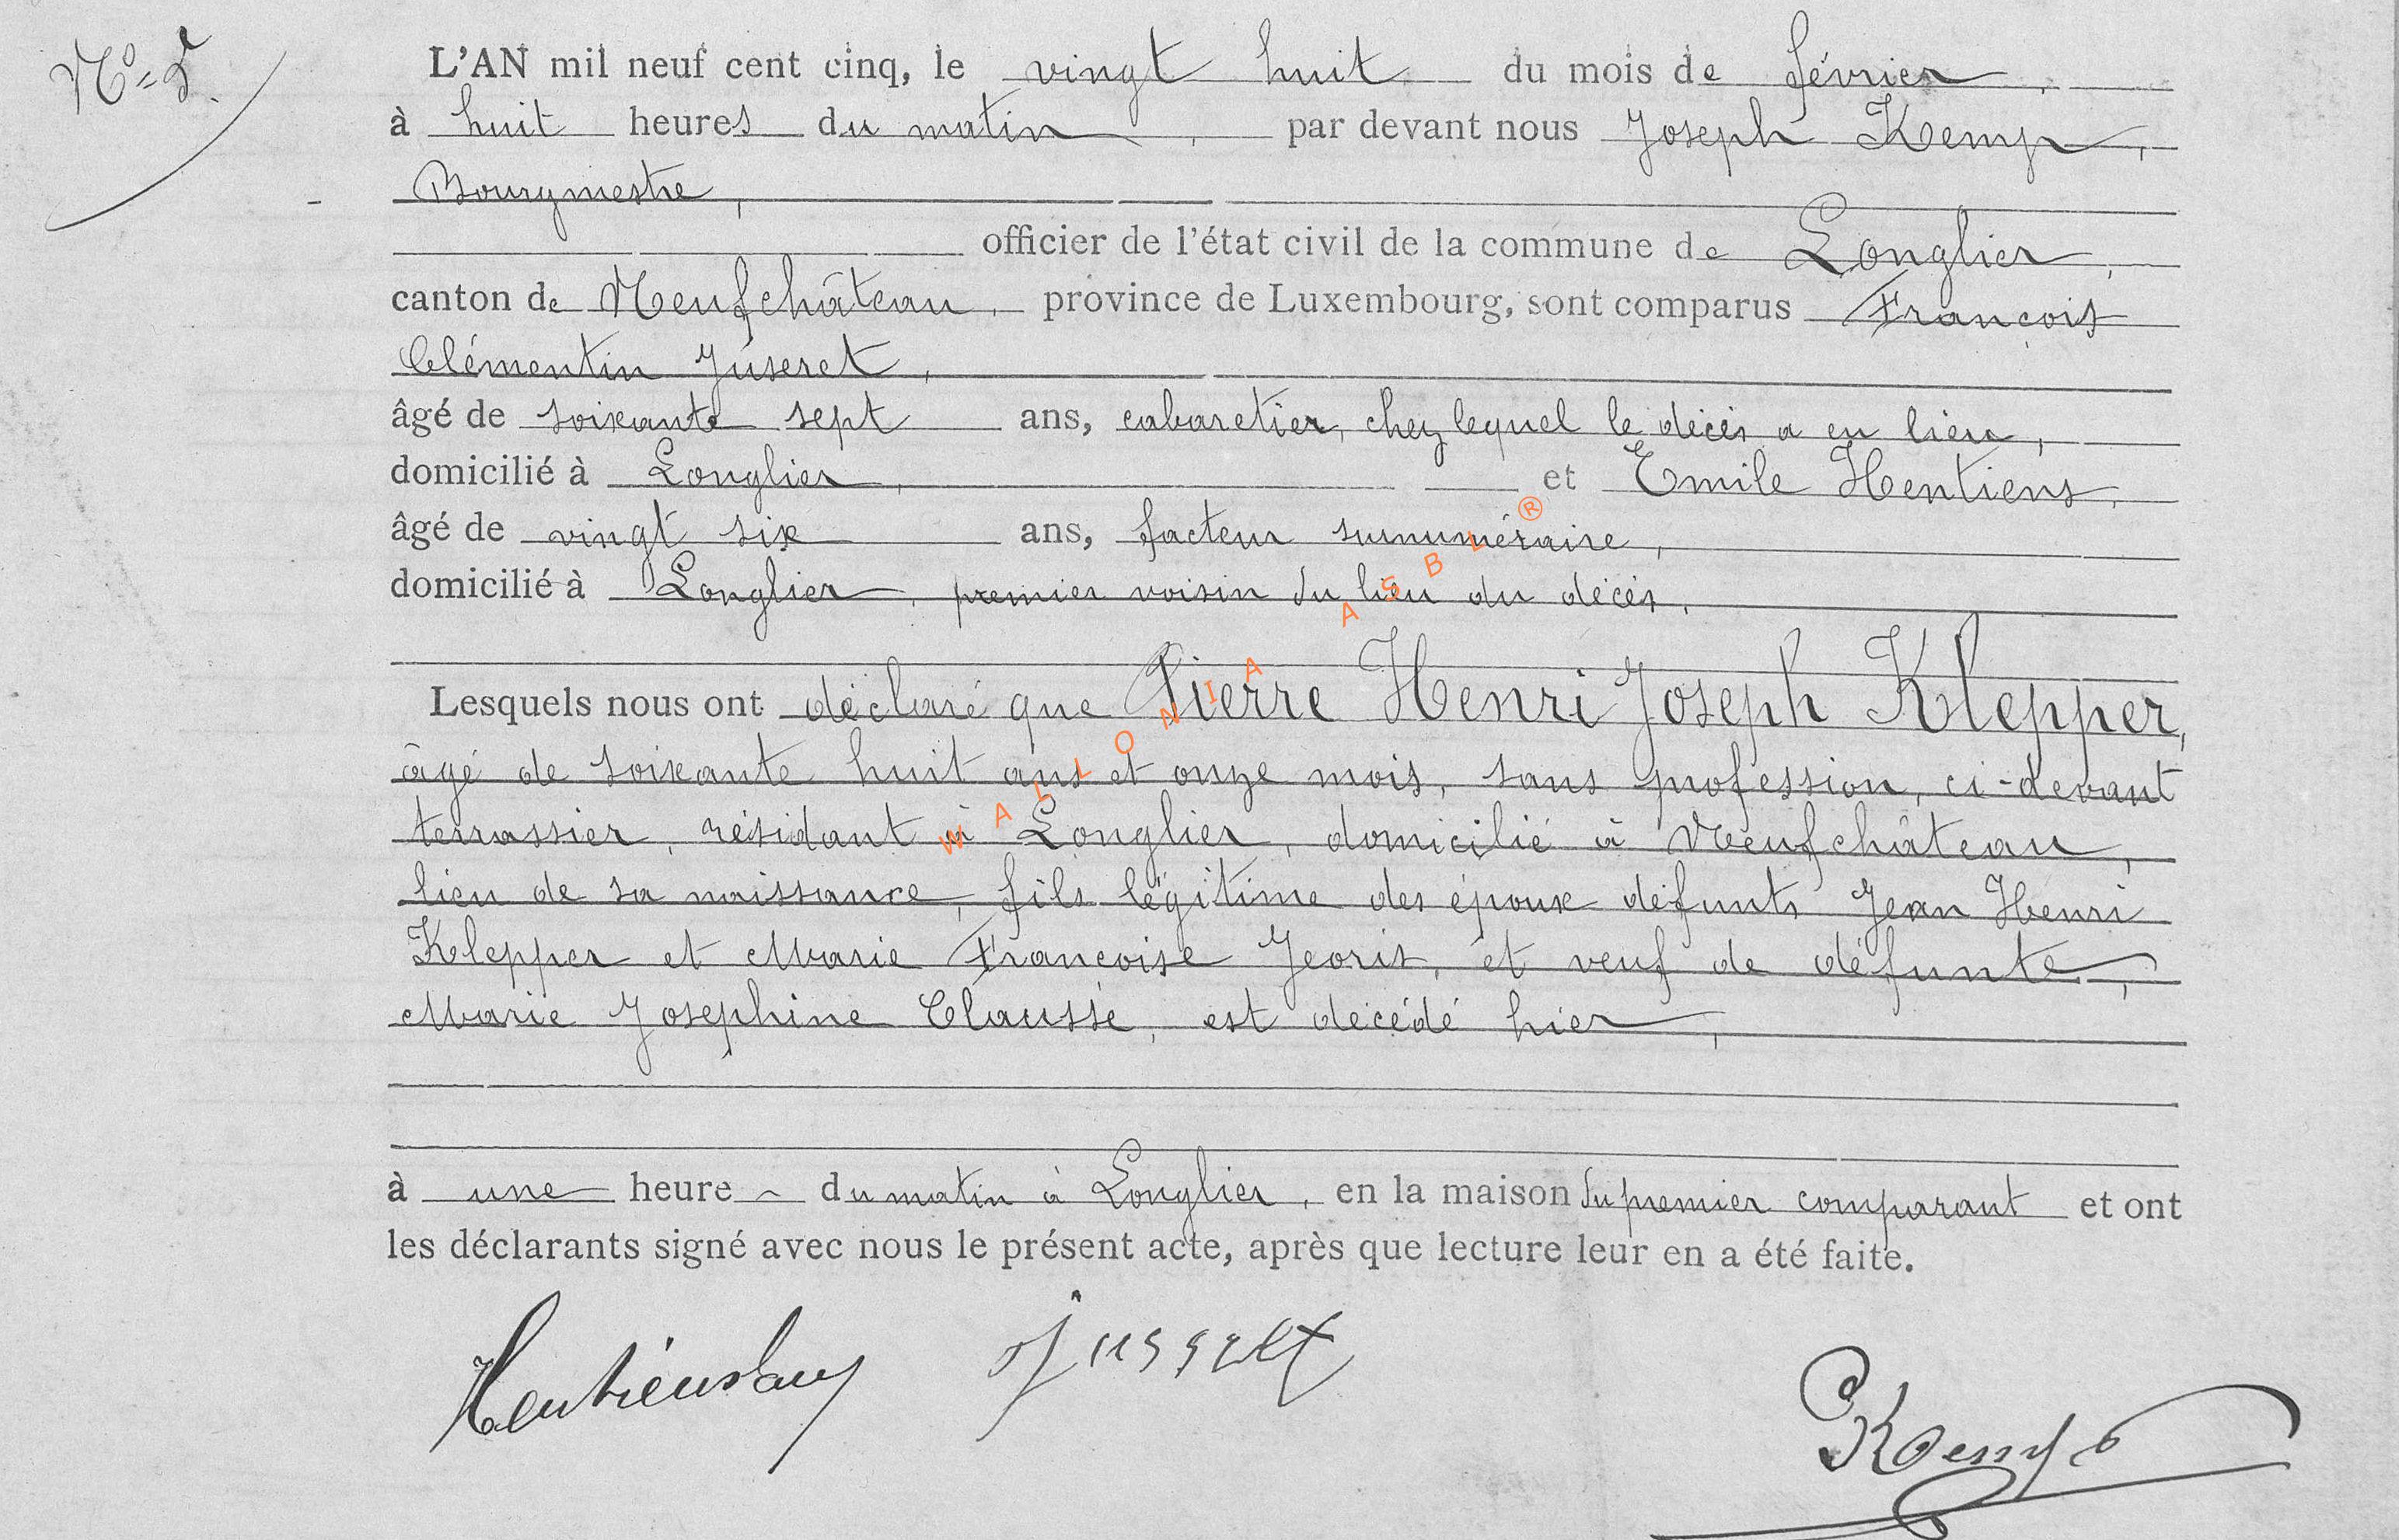 N° 5.
L'AN mil neuf cent cinq, le vingt huit du mois de février,
à huit heures du matin, par devant nous Joseph Kemp,
Bourgmestre,
officier de l'état civil de la commune de Longlier,
canton de Neufchâteau, province de Luxembourg, sont comparus François
Clémentin Juseret,
âgé de soixante sept ans, cabaretier, chez lequel le décès a eu lieu,
domicilié à Longlier, et Emile Hentiens,
âgé de vingt six ans, facteur surnuméraire,
domicilié à Longlier, premier voisin du lieu du décès,
Lesquels nous ont déclaré que Pierre Henri Joseph Klepper,
âgé de soixante huit ans et onze mois, sans profession, ci-devant
terrassier, résidant à Longlier, domicilié à Neufchâteau,
lieu de sa naissance, fils légitime des époux défunts Jean Henri
Klepper et Marie Françoise Jeoris, et veuf de défunte,
Marie Josephine Clausse, est décédé hier,
à une heure du matin à Longlier, en la maison du premier comparant et ont
les déclarants signé avec nous le présent acte, après que lecture leur en a été faite.
Juseret
Kemp
WALLONIA ASBL ®